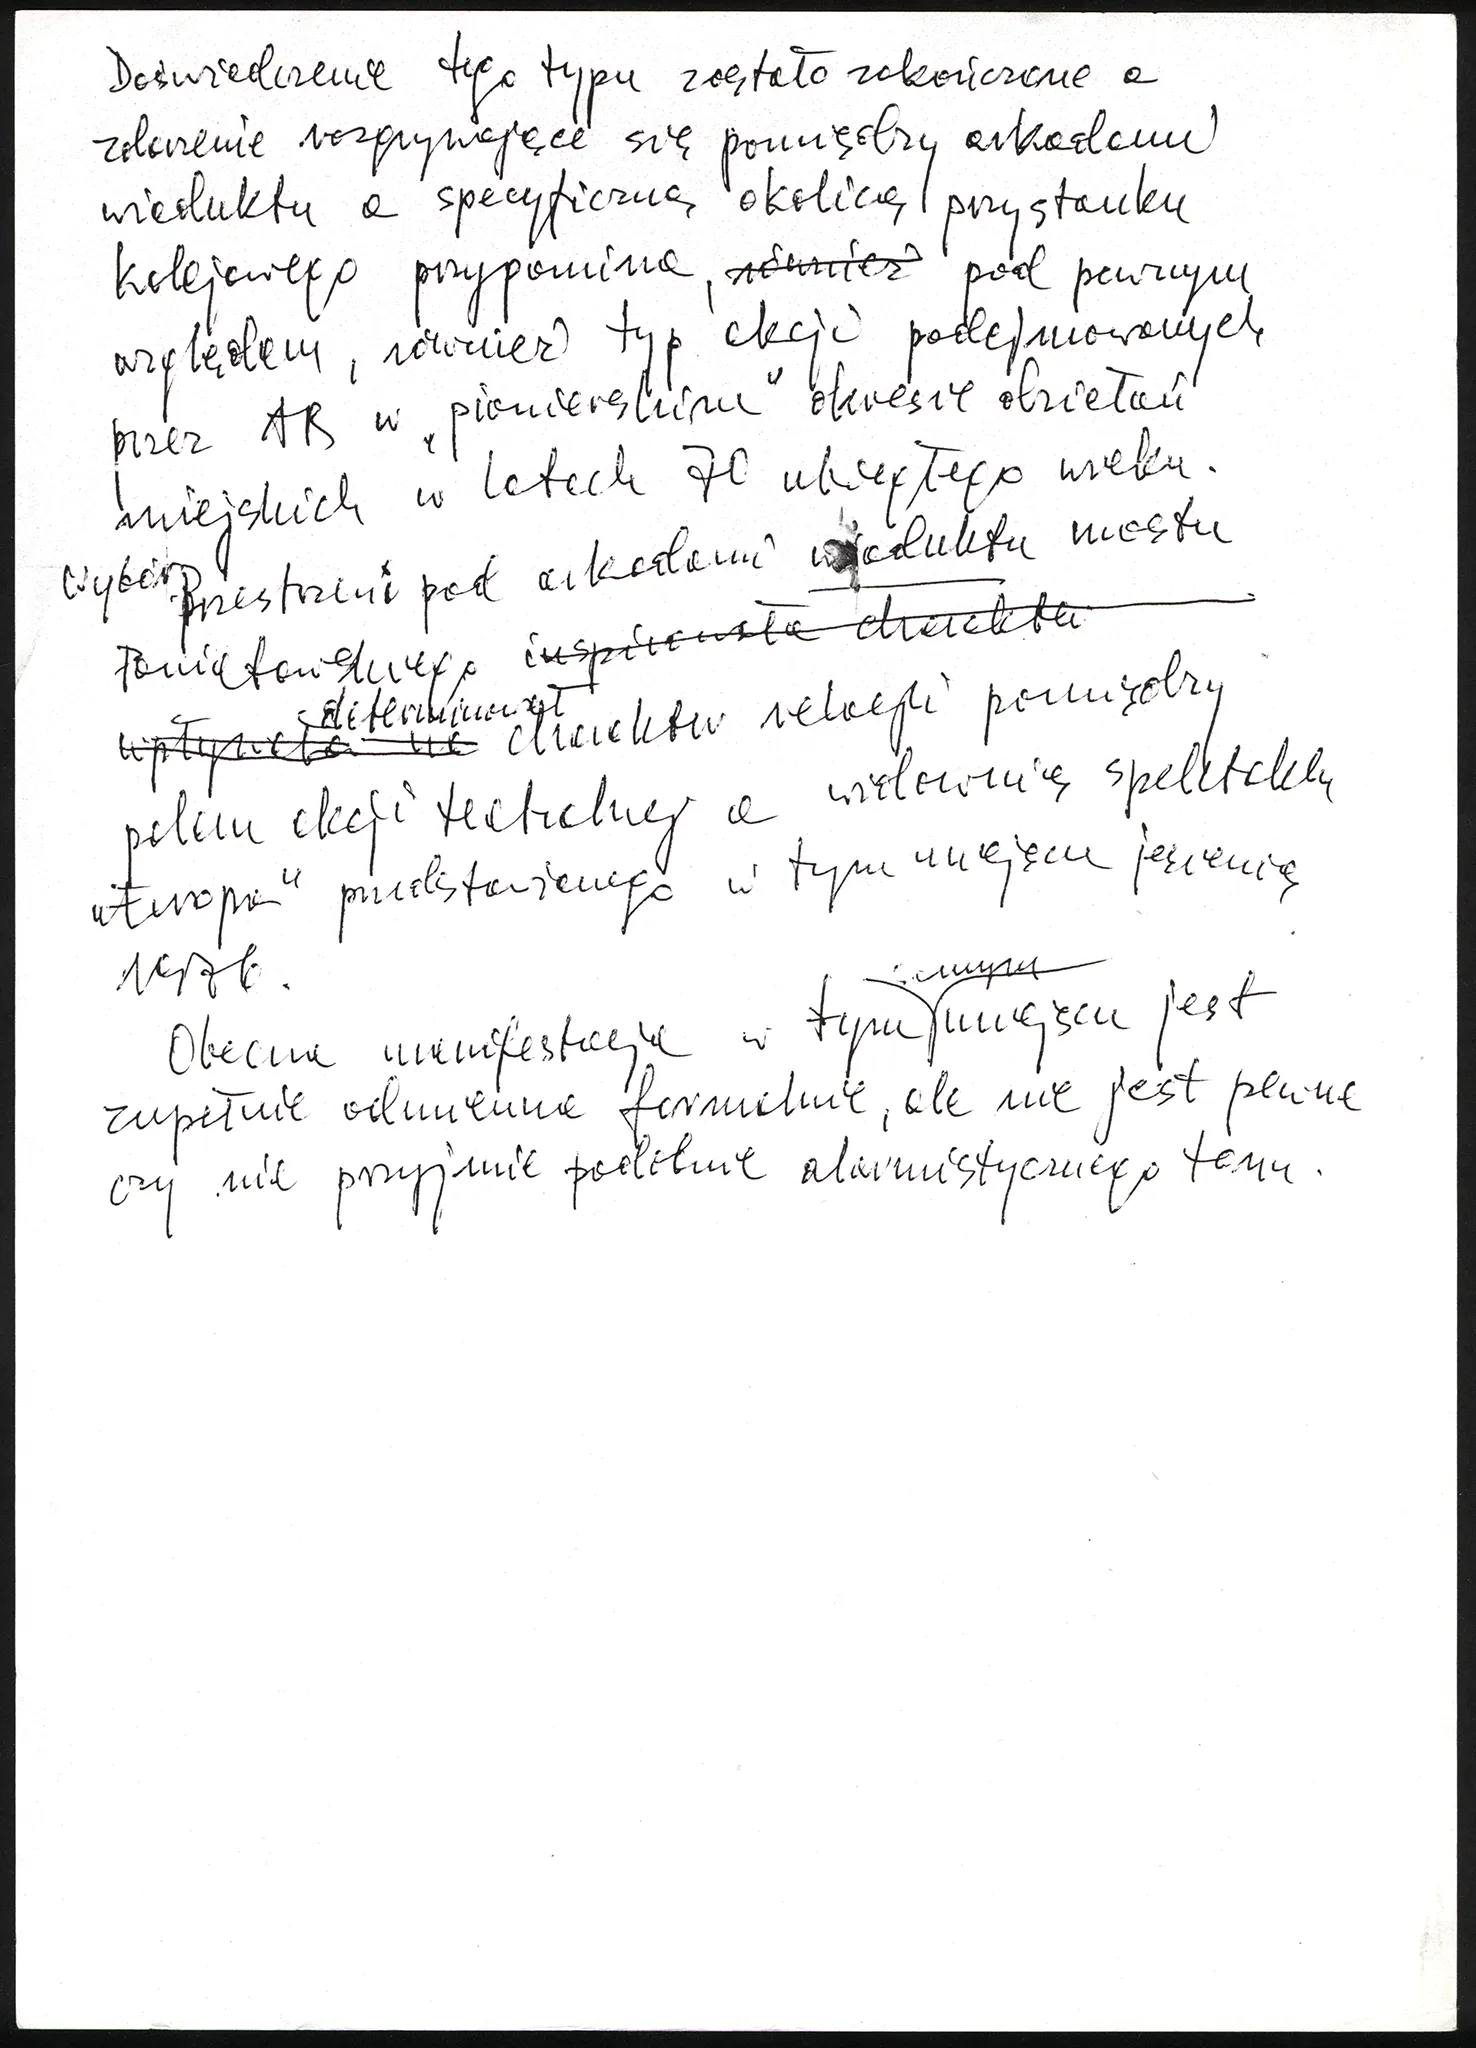 Doświadczenie tego typu zostało zakończone a
zdarzenie rozgrywające się pomiędzy arkadami
wiaduktu a specyficzną okolicą przystanku
kolejowego przypomina, również pod pewnym
względem, również typ akcji podejmowanych
przez AR w „pionierskim" okresie działań
miejskich w latach 70 ubiegłego wieku.
Wybór przestrzeni pod arkadami wiaduktu mostu
Poniatowskiego inspirowała charakter
determinował
wpływała na charakter relacji pomiędzy
polem akcji teatralnej a widownią spektaklu
„Europa" przedstawionego w tym miejscu jesienią
1976.
samym
Obecna manifestacja w tym miejscu jest
zupełnie odmienna formalnie, ale nie jest pewne
czy nie przyjmie podobnie alarmistycznego tonu.